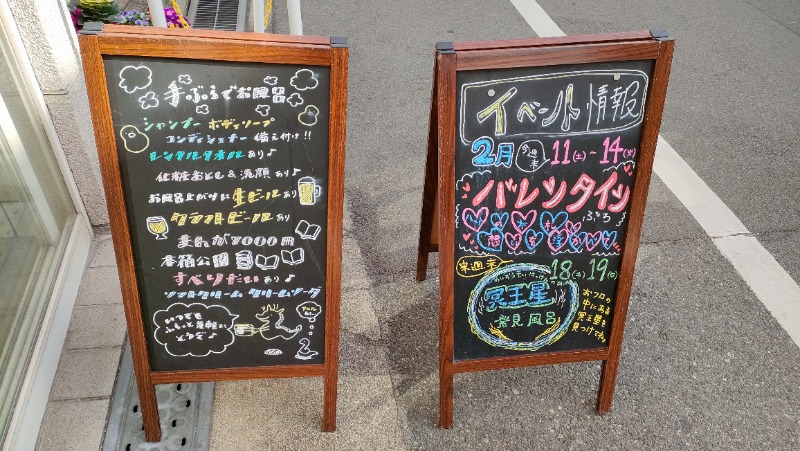 手ぶらでお風呂
シャンプー ボディソープ
コンディショナー 備え付け!!
レンタルタオル あり♪
化粧おとし&洗顔 あり♪
お風呂上がりに 生ビール
クラフトビール あり
まんが7000冊
本箱公園
すべりだい あり♪
ソフトクリーム クリームソーダ
いつでも
ふらっと気軽に
どうぞ♪
イベント情報
2月 今週末 11(土)~14(火)
バレンタイン
ふろ
来週末 18(土) 19(日)
冥王星
発見風呂
お風呂の
中にある
冥王星を
見つけてネ